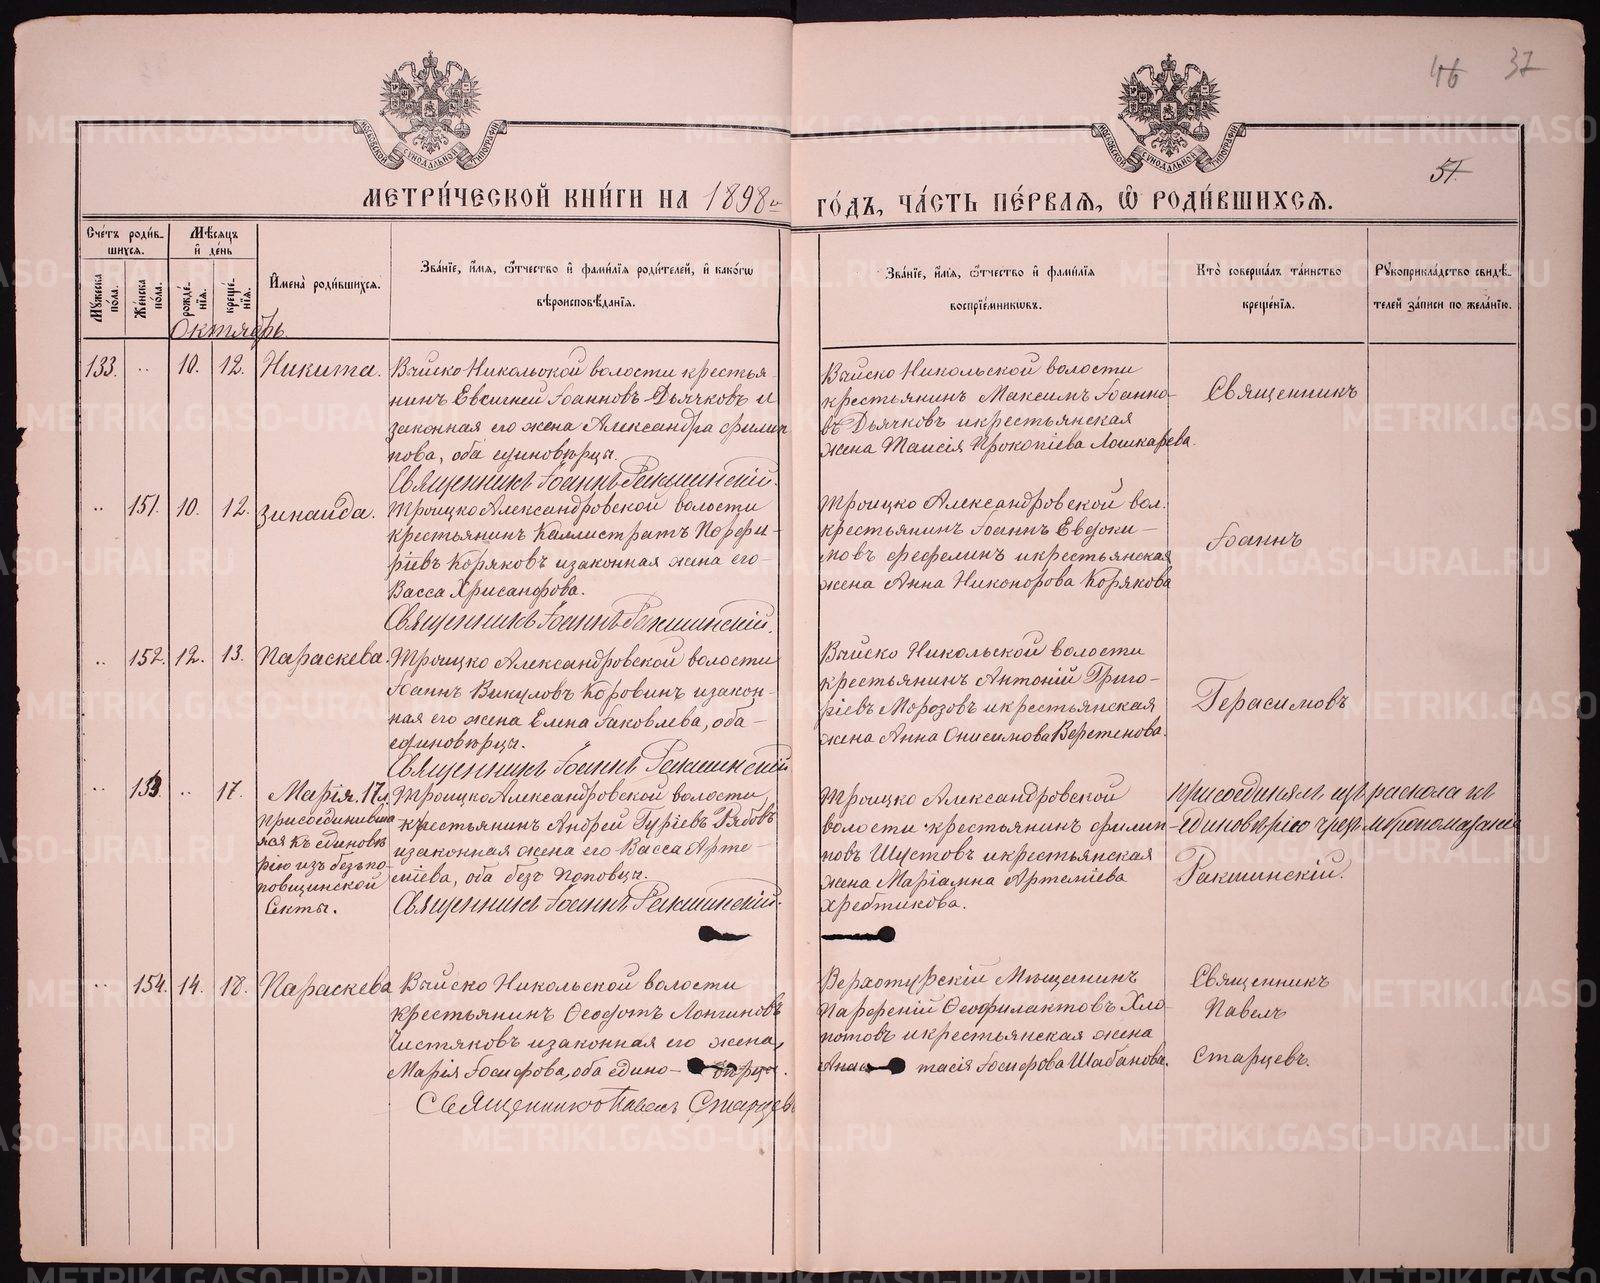 46 37
МОСКОВСКОЙ СѴНОДАЛЬНОЙ ТИПОГРАФІИ
МОСКОВСКОЙ СѴНОДАЛЬНОЙ ТИПОГРАФІИ
51
МЕТРИ́ЧЕСКОЙ КНИ́ГИ НА 1898й ГО́ДЪ, ЧА́СТЬ ПЕ́РВАѦ, Ѡ҆ РОДИ́ВШИХСѦ.
Сче́тъ роди́в-
шихсѧ.
Мѣ́сѧцъ
и҆ де́нь
Мꙋ́жеска
по́ла.
Же́нска
по́ла.
рожде́-
нїѧ.
креще́-
нїѧ.
И҆мена̀ роди́вшихсѧ.
Зва́нїе, и҆́мѧ, ѻ҆́тчество и҆ фами́лїѧ роди́телей, и҆ како́гѡ
вѣроисповѣ́данїѧ.
Зва́нїе, и҆́мѧ, ѻ҆́тчество и҆ фами́лїѧ
воспрїе́мникѡвъ.
Кто̀ соверша́лъ та́инство
креще́нїѧ.
Рꙋкоприкла́дство свидѣ́-
телей за́писи по жела́нїю.
Октябрь
133. ·· 10. 12. Никита.
Выйско Никольской волости крестья-
нинъ Евсигней Іоанновъ Дьячковъ и
законная его жена Александра Филип
пова, оба единовѣрцы.
Священникъ Іоаннъ Ракшинскій.
Выйско Никольской волости
крестьянинъ Максимъ Іоанно-
въ Дьячковъ и крестьянская
жена Таисія Прокопіева Лошкарева.
Священникъ
·· 151. 10. 12. Зинаида.
Троицко Александровской волости
крестьянинъ Каллистратъ Порфи-
ріевъ Коряковъ и законная жена его-
Васса Хрисанфова.
Священникъ Іоаннъ Ракшинскій.
Троицко Александровской вол.
крестьянинъ Іоаннъ Евдоки-
мовъ Фефелинъ и крестьянская
жена Анна Никонорова Корякова
Іоаннъ
·· 152. 12. 13. Параскева.
Троицко Александровской волости
Іоаннъ Викуловъ Коровинъ и закон-
ная его жена Елена Іаковлева, оба-
единовѣрцы.
Священникъ Іоаннъ Ракшинскій
Выйско Никольской волости
крестьянинъ Антоній Григо-
ріевъ Морозовъ и крестьянская
жена Анна Онисимова Веретенова.
Герасимовъ
·· 153. ·· 17. Марія. 17 л.
присоединивша
яся къ единовѣ
рію изъ безъпо-
повщинской
секты.
Троицко Александровской волости
крестьянинъ Андрей Гуріевъ Рябовъ
и законная жена его Васса Арте-
міева, оба безъ поповцы.
Священникъ Іоаннъ Ракшинскій.
Троицко Александровской
волости крестьянинъ Филип-
повъ Шустовъ и крестьянская
жена Маріамна Артеміева
Хребтикова.
Присоединялъ изъ раскола къ
единовѣрію чрезъ мѵропомазаніе
Ракшинскій.
·· 154. 14. 18. Параскева
Выйско Никольской волости
крестьянинъ Ѳеодотъ Лонгиновъ
Чистяковъ и законная его жена,
Марія Іосифова, оба едино- вѣрцы.
Священникъ Павелъ Старцевъ
Верхотурскій Мѣщанинъ
Парфеній Ѳеофилактовъ Хло-
потовъ и крестьянская жена
Анас тасія Іосифова Шабанова.
Священникъ
Павелъ
Старцевъ.
METRIKI.GASO-URAL.RU